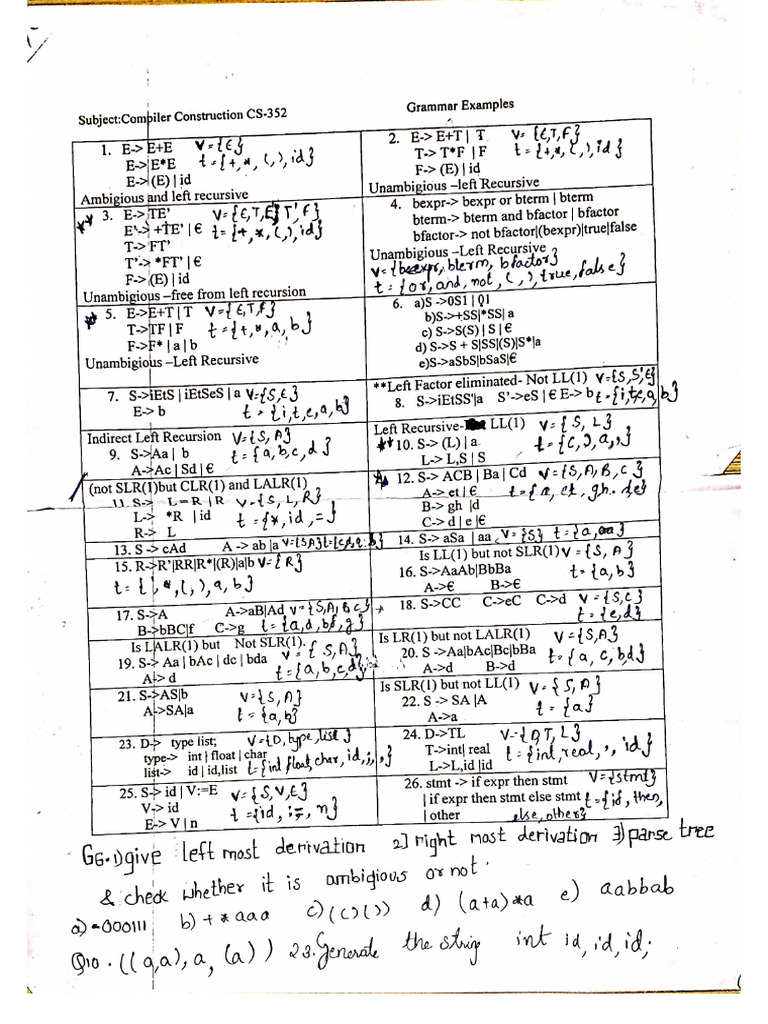 Subject:Compiler Construction CS-352
Grammar Examples
1. E-> E+E V={E}
E-> E*E t={+,*,(,),id}
E-> (E) | id
Ambigious and left recursive
2. E-> E+T | T V={E,T,F}
T-> T*F | F t={+,*,(,),id}
F-> (E) | id
Unambigious –left Recursive
** 3. E-> TE' V={E,T,E' T',F}
E'-> +TE' | € t={+,*,(,),id}
T->FT'
T'-> *FT' | €
F->(E) | id
Unambigious –free from left recursion
4. bexpr-> bexpr or bterm | bterm
bterm-> bterm and bfactor | bfactor
bfactor-> not bfactor|(bexpr)|true|false
Unambigious –Left Recursive
V={bexpr, bterm, bfactor}
t={or,and,not,(,),true,false}
5. E->E+T | T V={E,T,F}
T->TF | F t={+,*,a,b}
F->F* | a | b
Unambigious –Left Recursive
6. a)S ->0S1 | 01
b)S->+SS|*SS| a
c) S->S(S) | S | €
d) S->S + S|SS|(S)|S*|a
e)S->aSbS|bSaS|€
7. S->iEtS | iEtSeS | a V={S,E}
E-> b t={i,t,e,a,b}
**Left Factor eliminated- Not LL(1) V={S,S',E}
8. S->iEtSS'|a S'->eS | € E-> b t={i,t,e,a,b}
Indirect Left Recursion V={S,A}
9. S->Aa | b t={a,b,c,d}
A->Ac | Sd | €
Left Recursive- LL(1) V={S, L}
** 10. S-> (L) | a t={(,),a,,}
L-> L,S | S
(not SLR(1)but CLR(1) and LALR(1)
11. S-> L=R | R V={S, L, R}
L-> *R | id t={*,id,=}
R-> L
12. S-> ACB | Ba | Cd V={S,A,B,C}
A-> et | € t={a, et, gh. de}
B-> gh |d
C-> d | e |€
13. S -> cAd A -> ab |a V={S,A} t={c,d,a,b}
14. S-> aSa | aa V={S} t={a,aa}
15. R->R'|RR|R*|(R)|a|b V={R}
t={|,*,(,),a,b}
Is LL(1) but not SLR(1) V={S,A}
16. S->AaAb|BbBa t={a,b}
A->€ B->€
17. S->A A->aB|Ad V={S,A,B,C}
B->bBC|f C->g t={a,d,b,f,g}
18. S->CC C->eC C->d V={S,C}
t={e,d}
Is LALR(1) but Not SLR(1). V={S,A}
19. S-> Aa | bAc | dc | bda t={a,b,c,d}
A-> d
Is LR(1) but not LALR(1) V={S,A}
20. S ->Aa|bAc|Bc|bBa t={a, c, b,d}
A->d B->d
21. S->AS|b V={S,A}
A->SA|a t={a,b}
Is SLR(1) but not LL(1) V={S,A}
22. S -> SA |A t={a}
A->a
23. D-> type list; V={D,type,list}
type-> int | float | char
list-> id | id,list t={int float,char,id,;,,}
24. D->TL V={D,T,L}
T->int| real t={int,real,,,id}
L->L,id |id
25. S-> id | V:=E V={S,V,E}
V-> id t={id, :=, n}
E-> V | n
26. stmt -> if expr then stmt V={stmt}
| if expr then stmt else stmt t={if, then,
| other else,other}
G6. 1) give left most derivation 2) right most derivation 3) parse tree
& check whether it is ambigious or not.
a) 000111 b) + * aaa c) ( ( ) ( ) ) d) (a+a)*a e) aabbab
Q10. ((a,a), a, (a)) 23. Generate the string int id, id, id;